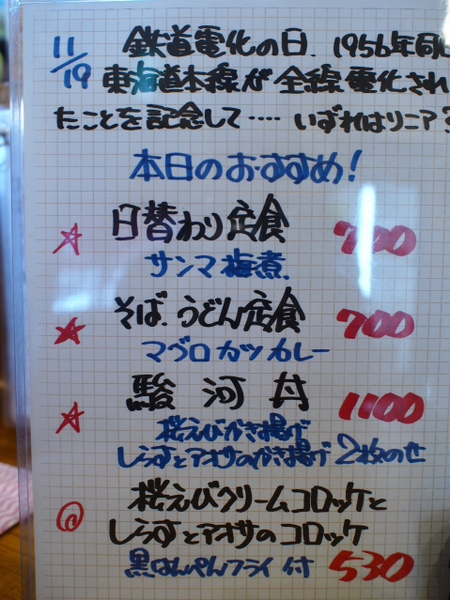 11/19 鉄道電化の日、1956年同じ
東海道本線が全線電化され
たことを記念して‥‥ いずれはリニア?
本日のおすすめ!
☆ 日替わり定食 700
サンマ梅煮、
★ そば、うどん定食 700
マグロカツカレー
☆ 駿河丼 1100
桜えびかき揚げ
しらすとアオサのかき揚げ 2枚のせ
◎ 桜えびクリームコロッケと
しらすとアオサのコロッケ
黒はんぺんフライ付 530